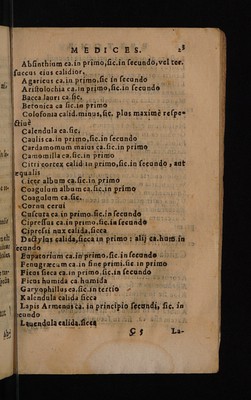 MEDICES. 28
Absinthium ca.in primo,sic.in secundo,vel ter.
succus eius calidior.
Agaricus ca.in primo.sic in secundo
Aristolochia ca.in primo,sic.in secundo
Bacca lauri ca.sic,
Betonica ca sic.in primo
Colofonia calid.minus,sic. plus maximè respe-
ctiuè
Calendula ca.sic,
Caulis ca.in primo,sic.in secundo
Cardamomum maius ca.sic.in primo
Camomilla ca.sic.in primo
Citri cortex calid in primo,sic.in secundo, aut
equalis
Cicer album ca.sic.in primo
Coagulum album ca.sic.in primo
Coagulum ca.sic.
Cornu cerui
Cuscuta ca in primo.sic.in secundo
Cipressus ca.in primo.sic.in secundo
Cipressi nux calida,sicca
Dactylus calida,sicca in primo: alij ca.hum.in
secundo
Eupatorium ca.in primo.sic.in secundo
Fenugræcum ca.in fine primi.sic in primo
Ficus sicca ca.in primo,sic.in secundo
Ficus humida ca.humida
Garyophillus ca.sic.in tertio
Kalendula calida sicca
Lapis Armenus ca. in principio secundi, sic. in
secundo
Lauendula calida.sicca
G 5 La-